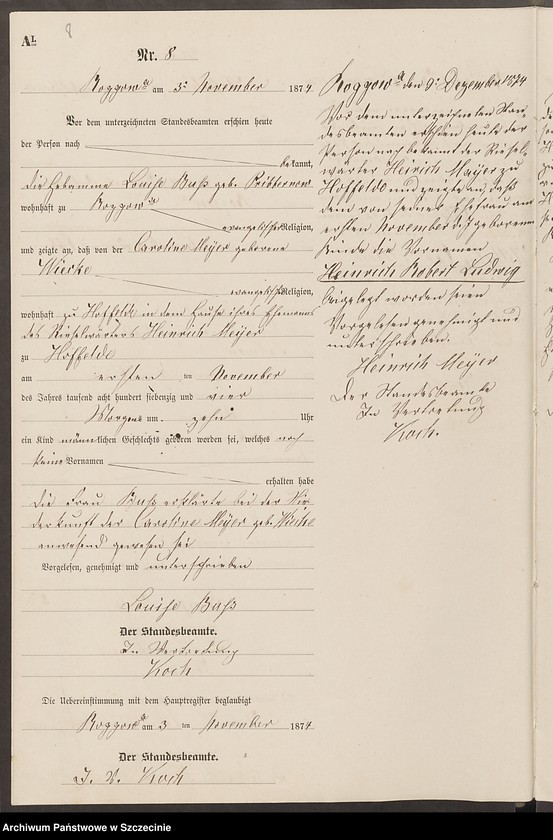 A1.
8
Nr. 8
Roggow a am 3ten November 1874
Vor dem unterzeichneten Standesbeamten erschien heute
der Person nach
bekannt,
die Hebamme Louise Bass geb. Pribbernow
wohnhaft zu Roggow a
evangelischer Religion,
und zeigte an, daß von der Caroline Meÿer geborene
Wierke
evangelischer Religion,
wohnhaft zu Hoffelde in dem Hause ihres Ehemanns
des Rieselwärters Heinrich Meÿer
zu Hoffelde
am ersten ten November
des Jahres tausend acht hundert siebenzig und vier
Morgens um zehn Uhr
ein Kind männlichen Geschlechts geboren worden sei, welches noch
keine Vornamen
erhalten habe
die Frau Bass erklärte bei der Nie-
derkunft der Caroline Meÿer geb.
anwesend gewesen sei
Vorgelesen, genehmigt und unterschrieben
Louise Bass
Der Standesbeamte.
In Vertretung
Koch
Die Uebereinstimmung mit dem Hauptregister beglaubigt
Roggow a am 3 ten November 1874
Der Standesbeamte.
I. V. Koch
Roggow a den 9ten Dezember 1874
Vor dem unterzeichneten Stan-
desbeamten erschien heute der
Person nach bekannt der Riesel-
wärter Heinrich Meÿer zu
Hoffelde und zeigte an, daß
dem von seiner Ehefrau am
ersten November d. J. geborenen
Kinde die Vornamen
Heinrich Robert Ludwig
beigelegt worden seien
Vorgelesen genehmigt und
unterschrieben.
Heinrich Meÿer
Der Standesbeamte
In Vertretung
Koch.
Archiwum Państwowe w Szczecinie